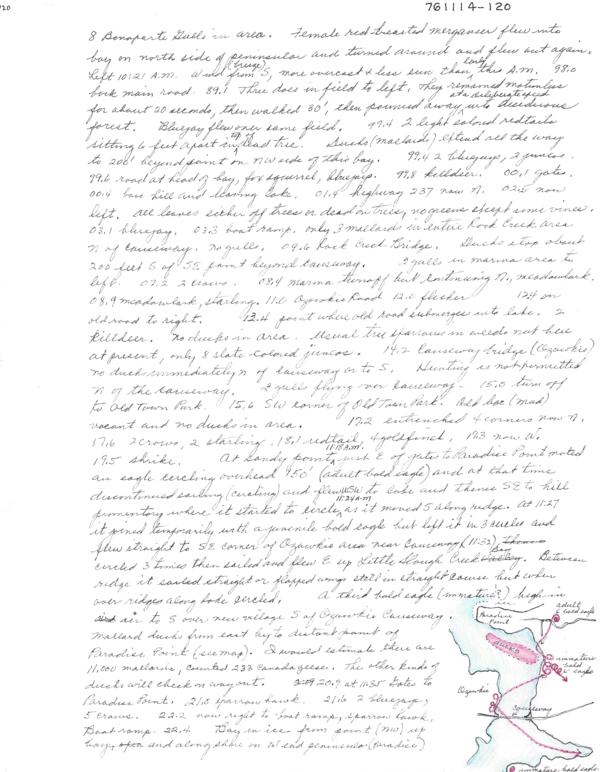 761114-120
8 Bonaparte Gulls in area. Female red-breasted merganser flew into
bay on north side of peninsular and turned around and flew out again.
Left 10:21 A.M. Wind from S, more overcast & less sun than early this A.M. 98.0
back main road 89.1 Three does in field to left, They remained motionless
for about 20 seconds, then walked 30', then pounced away at a deliberate speed into deciduous
forest. Bluejay flew over same field. 99.4 2 light colored redtails
sitting 6 feet apart in dead tree. Ducks (mallards) extend all the way
to 200' beyond point on NW side of this bay. 99.4 2 bluejays, 2 juncos.
99.6 road at head of bay, fox squirrel, bluejay. 99.8 killdeer. 00.1 gates.
00.4 base hill and leaving lake. 01.4 highway 237 now N. 02.5 now
left. All leaves either off trees or dead on trees, no greens except some vines.
03.1 bluejay. 03.3 boat ramp, only 3 mallards in entire Rock Creek area
N of causeway. No gulls. 09.6 Rock Creek Bridge. Ducks stop about
200 feet S of SE point beyond causeway. 2 gulls in marina area to
left. 07.2 2 crows. 08.4 marina turnoff but continuing N, meadowlark.
08.9 meadowlark, starling. 11.0 Ozawkie Road 12.0 flicker 12.4 on
old road to right. 13.4 point where old road submerges into lake. 2
killdeer. No ducks in area. Usual tree sparrows in weeds not here
at present, only 8 slate-colored juncos. 14.2 Causeway bridge (Ozawkie)
no ducks immediately N of causeway or to S. Hunting is not permitted
N of the causeway. 2 gulls flying over causeway. 15.0 turn off
to Old Town Park. 15.6 SW corner of Old Town Park. (mud)
vacant and no ducks in area. 17.2 entrenched 4 corners now N.
17.6 2 crows, 2 starling. 18.1 redtail, 4 goldfinch, 19.3 now W.
19.5 shrike. At sandy point 11:18 A.M. just E of gates to Paradise Point noted
an eagle circling overhead 950' (adult bald eagle) and at that time
discontinued sailing (curating) and flew WSW 11:24 A.M. to lake and thence SE to hill
promontory where it started to circle as it moved S along ridge. At 11:27
it joined temporarily with a juvenile bald eagle but left it in 3 circles and
flew straight to SE corner of Ozawkie area near Causeway (11:32)
circled 3 times then sailed and flew E up Little Slough Creek Bay. Between
ridge it sailed straight or flapped wings still in straight course but when
over ridges along lake circled. A third bald eagle (immature?) high in
air to S over new village S of Ozawkie Causeway.
Mallard ducks from east bay to distant point of
Paradise Point (see map). I would estimate there are
11,000 mallards, counted 233 Canada geese. The other kinds of
ducks will check on way out. 20.9 at 11:35 Gates to
Paradise Point. 21.0 sparrow hawk. 21.6 2 bluejays,
5 crows. 22.2 now right to boat ramp, sparrow hawk.
Boat ramp. 22.4 Bay in ice from point (NW) up
bay, and along shore on W end peninsula (Paradise)
Paradise Point
adult bald eagle
ducks
immature bald eagle
Ozawkie
causeway
immature bald eagle